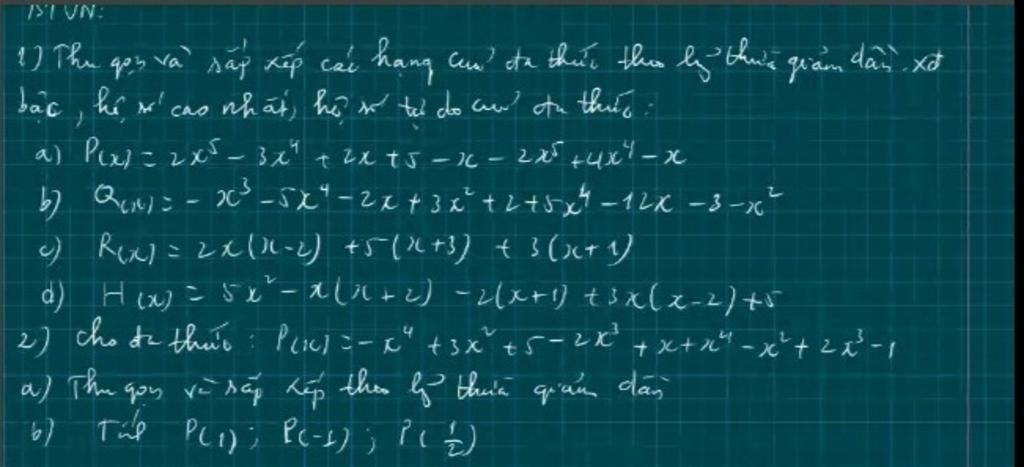 BTVN:
1) Thu gọn và sắp xếp các hạng của đa thức theo lỹ thừa giảm dần. xđ
bậc, hệ số cao nhất, hệ số tự do của đa thức:
a) P(x) = 2x⁵ - 3x⁴ + 2x + 5 - x - 2x⁵ + 4x⁴ - x
b) Q(x) = - x³ - 5x⁴ - 2x + 3x² + 2 + 5x⁴ - 12x - 3 - x²
c) R(x) = 2x(x-2) + 5(x+3) + 3(x+1)
d) H(x) = 5x² - x(x+2) - 2(x+1) + 3x(x-2) + 5
2) cho đa thức: P(x) = - x⁴ + 3x² + 5 - 2x³ + x + x⁴ - x² + 2x³ - 1
a) Thu gọn và sắp xếp theo lỹ thừa giảm dần
b) Tính P(1); P(-1); P(1/2)